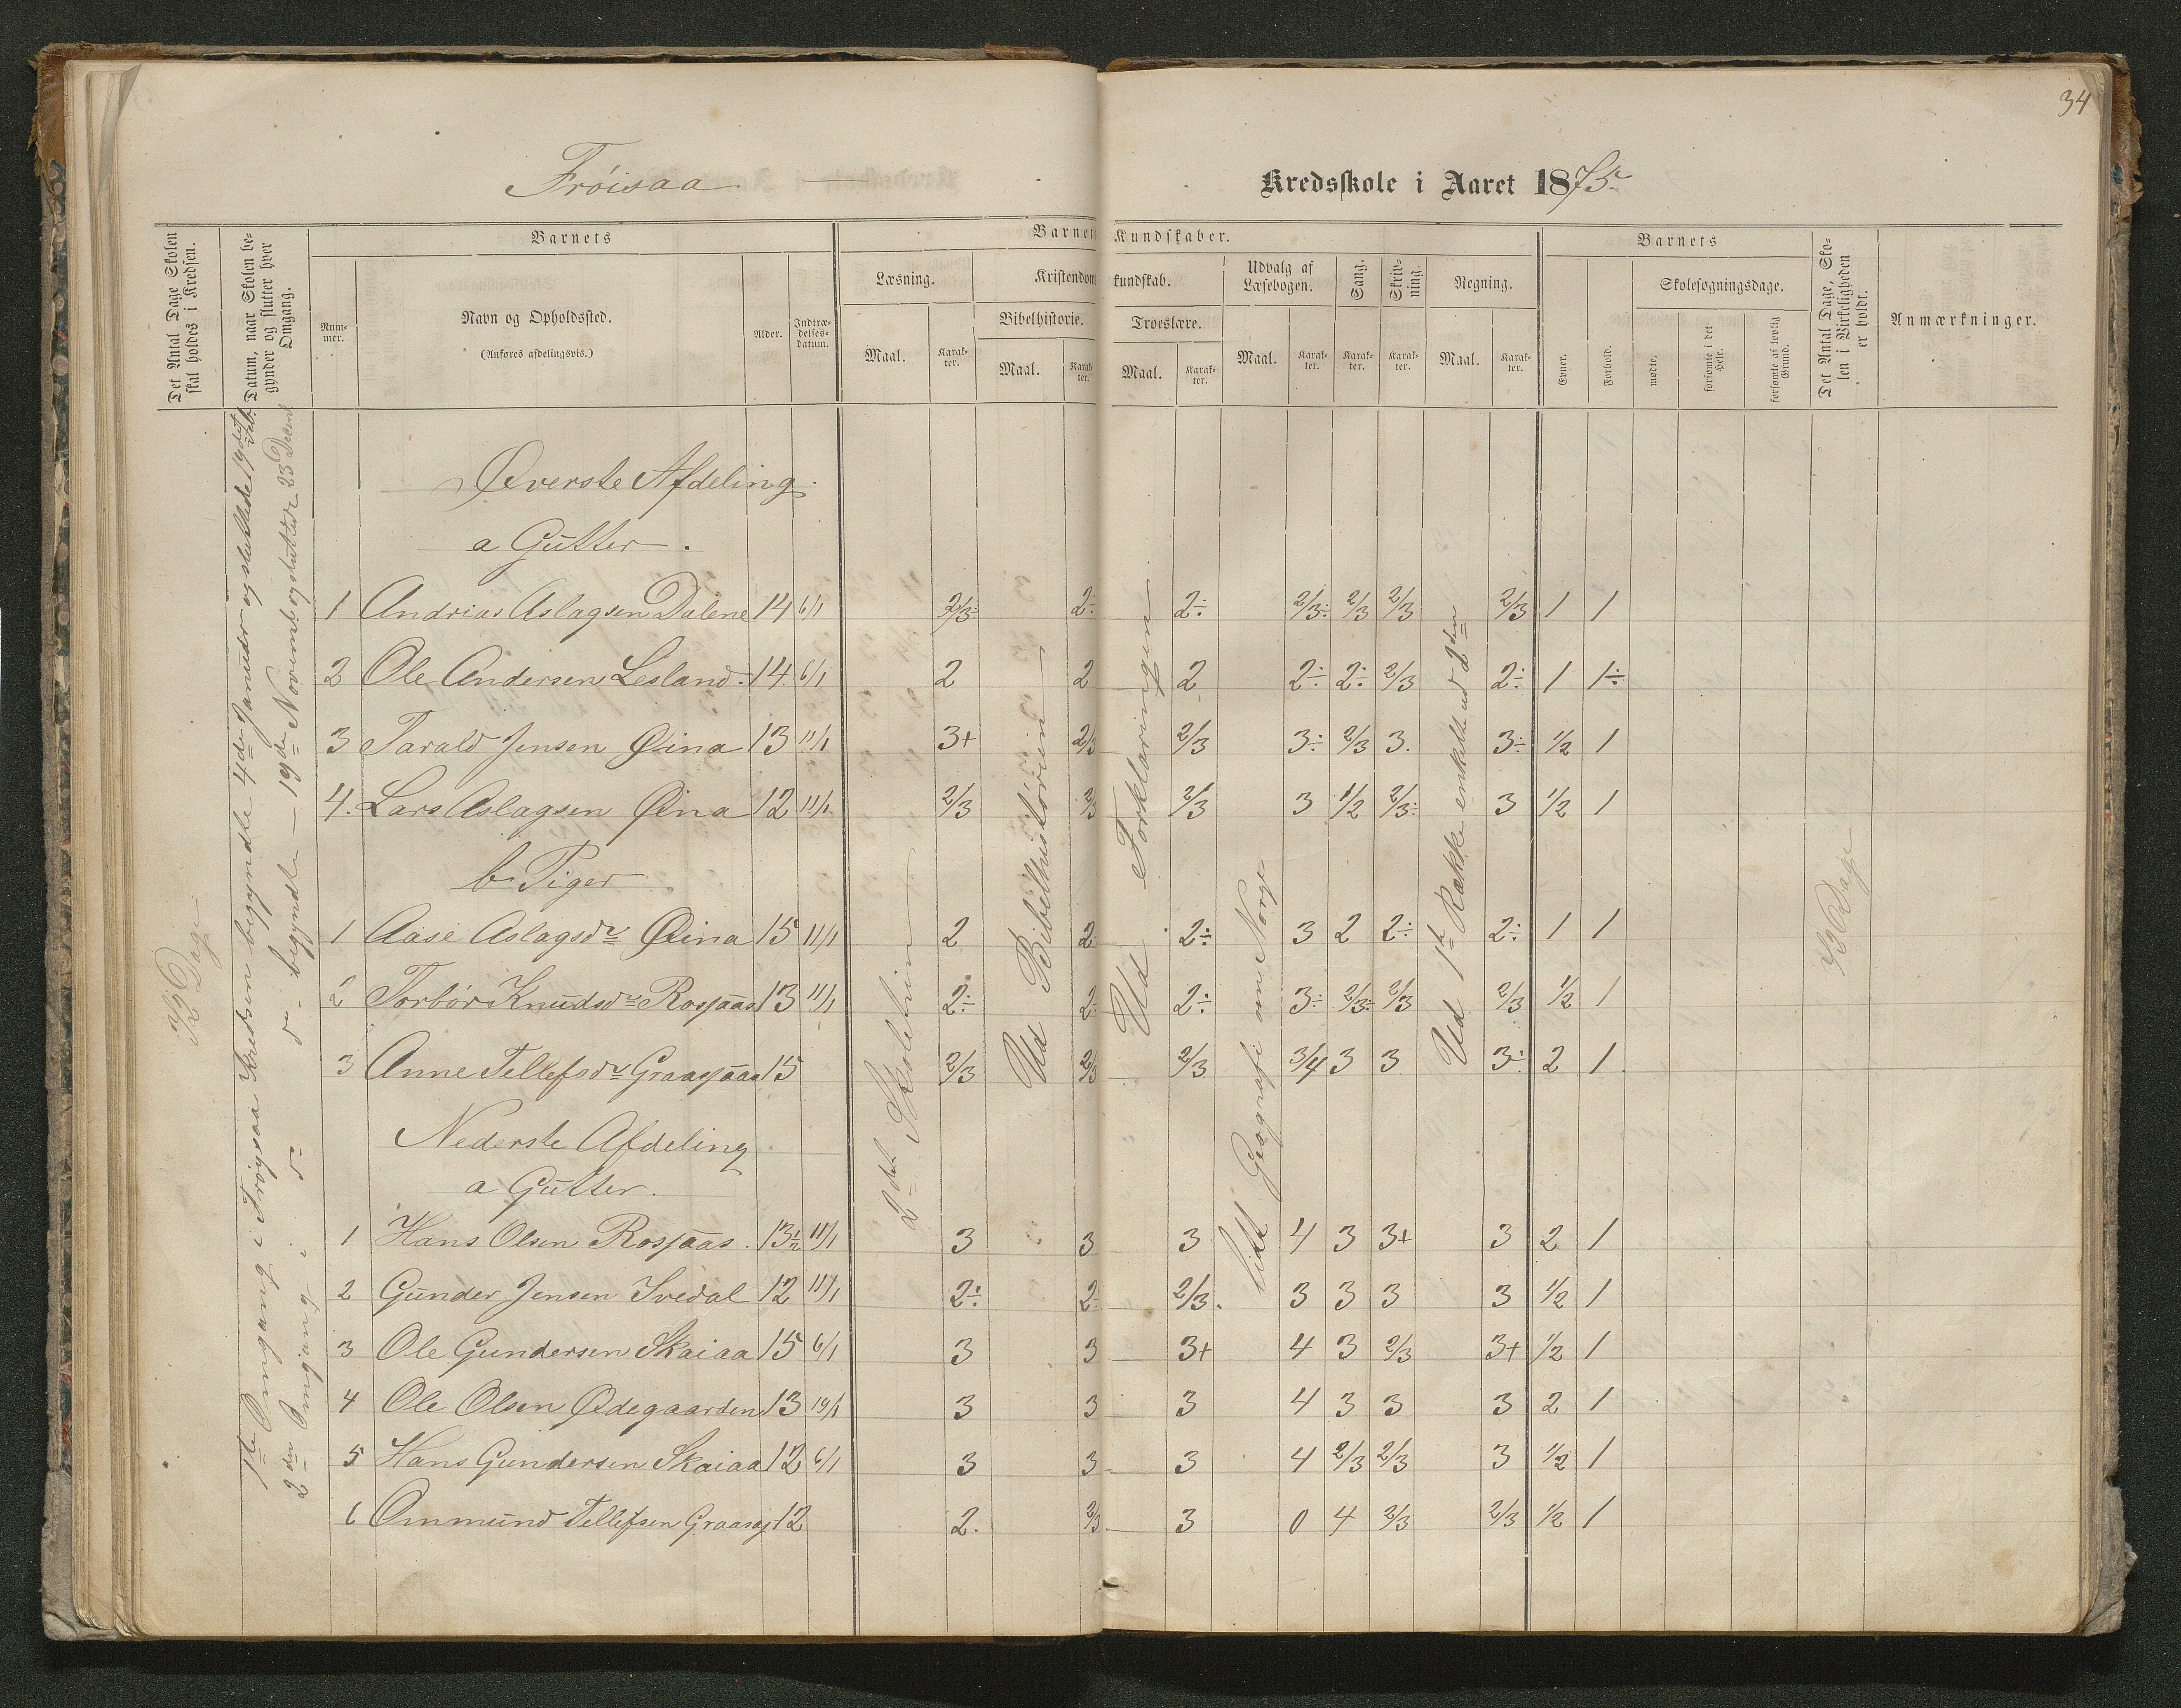 34
Frøisaa Kredsskole i Aaret 1875.
Det Antal Dage Skolen skal holdes i Kredsen.
Datum, naar Skolen begynder og slutter hver Omgang.
Barnets
Nummer.
Navn og Opholdssted.
(Anføres afdelingsvis.)
Alder.
Indtrædelsesdatum.
Barnets Kundskaber.
Læsning.
Maal.
Karakter.
Kristendomskundskab.
Bibelhistorie.
Maal.
Karakter.
Troeslære.
Maal.
Karakter.
Udvalg af Læsebogen.
Maal.
Karakter.
Sang.
Karakter.
Skrivning.
Karakter.
Regning.
Maal.
Karakter.
Barnets
Evner.
Forhold.
Skolesøgningsdage.
mødte.
forsømte i det Hele.
forsømte af lovlig Grund.
Det Antal Dage, Skolen i Virkeligheden er holdt.
Anmærkninger.
Øverste Afdeling
a Gutter.
1 Andrias Aslagsen Dalene 14 6/1 2/3÷ 2÷ 2÷ 2/3÷ 2/3 2/3 2/3 1 1
2 Ole Andersen Lesland 14 6/1 2 2 2 2÷ 2÷ 2/3 2÷ 1 1÷
3 Tarald Jensen Øina 13 11/1 3+ 2/3 2/3 3÷ 2/3 3. 3÷ 1/2 1
4. Lars Aslagsen Øina 12 11/1 2/3 2/3 2/3 3 1/2 2/3÷ 3 1/2 1
b Piger
1 Aase Aslagsdr Øina 15 11/1 2 2 2÷ 3 2 2÷ 2÷ 1 1
2 Torbør Knudsdr Rosjaas 13 11/1 2÷ 2÷ 2÷ 3÷ 2/3÷ 2/3 2/3 1/2 1
3 Anne Tellefsdr Graasjaas 15 2/3 2/3 2/3 3/4 3 3 3÷ 2 1
Nederste Afdeling
a Gutter.
1 Hans Olsen Rosjaas. 13½ 11/1 3 3 3 4 3 3+ 3 2 1
2 Gunder Jensen Ivedal 12 11/1 2÷ 2÷ 2/3. 3 3 3 3 1/2 1
3 Ole Gundersen Skaiaa 15 6/1 3 3 3+ 4 3 2/3 3+ 1/2 1
4 Ole Olsen Ødegaarden 13 19/1 3 3 3 4 3 3 3 2 1
5 Hans Gundersen Skaiaa 12 6/1 3 3 3 4 2/3 2/3 3 1/2 1
6 Ommund Tellefsen Graasaj 12 2. 2/3 3 0 4 2/3 2/3 1/2 1
Dage
1ste Omgang i Frøysaa Kredsen begyndte 4de Januar og sluttede 19det Feb.
2den Omgang i do do begyndte – 19de Novemb. og sluttede 23 Decemb
2det Skoletrin
Ud Bibelhistorien
Ud Forklaringen
Lidt Geografi om Norge
Ud 1ste Række enkelte ud 2den
Dage